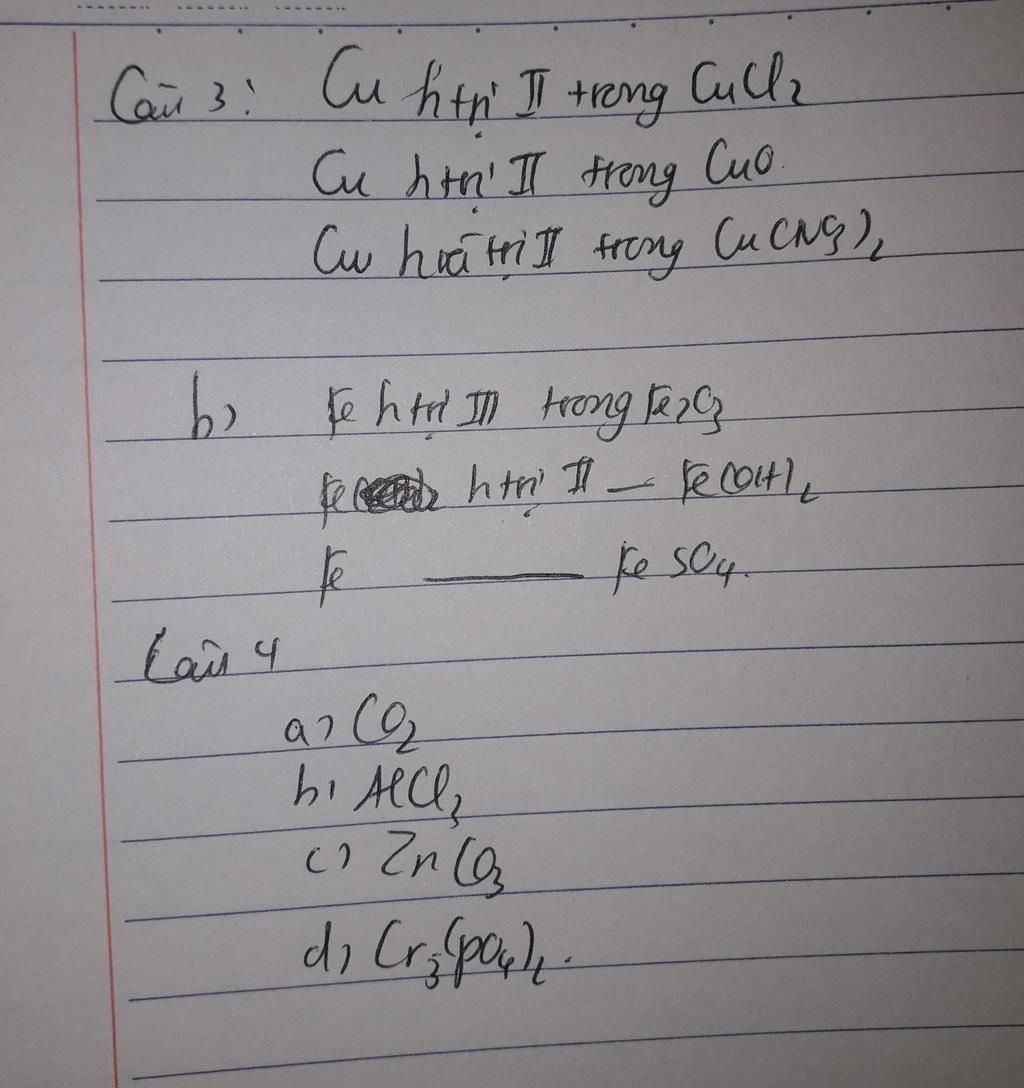 Câu 3: Cu htrị II trong CuCl2
Cu htrị II trong CuO.
Cu hoá trị II trong Cu(NO3)2
b) Fe htrị III trong Fe2O3
Fe htrị II — Fe(OH)2
Fe —— FeSO4.
Câu 4
a) CO2
b) AlCl3
c) ZnCO3
d) Cr3(PO4)2.